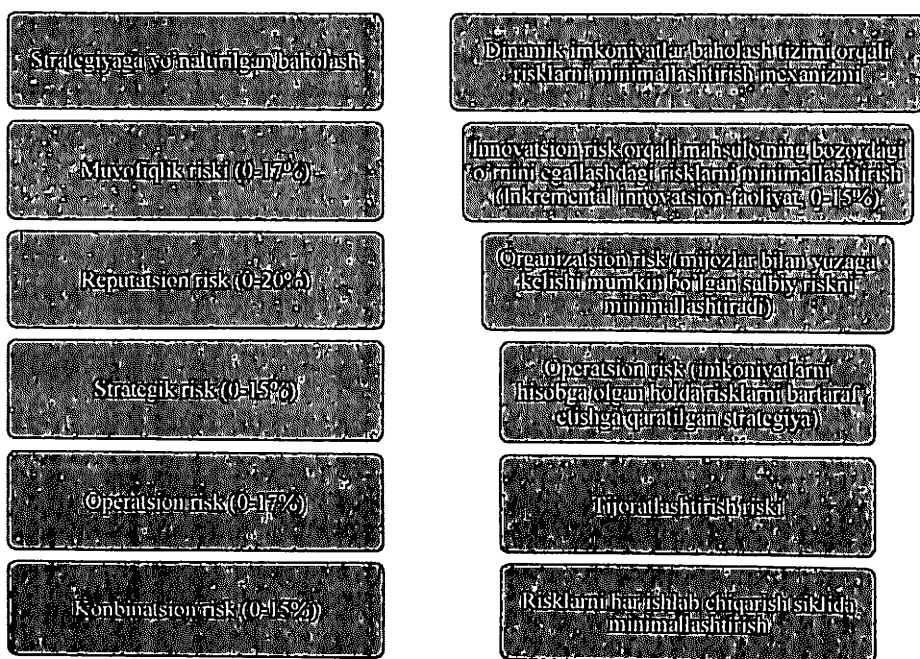 Strategiyaga yo'naltirilgan baholash
Muvofiqlik riski (0-17%)
Reputatsion risk (0-20%)
Strategik risk (0-15%)
Operatsion risk (0-17%)
Konbinatsion risk (0-15%)
Dinamik imkoniyatlar baholash tizimi orqali
risklarni minimallashtirish mexanizmi
Innovatsion risk orqali mahsulotning bozordagi
o'rnini egallashdagi risklarni minimallashtirish
(Inkremental innovatsion faoliyat, 0-15%)
Organizatsion risk (mijozlar bilan yuzaga
kelishi mumkin bo'lgan salbiy riskni
minimallashtiradi)
Operatsion risk (imkoniyatlarni
hisobga olgan holda risklarni bartaraf
etishga qaratilgan strategiya)
Tijoratlashtirish riski
Risklarni har ishlab chiqarish siklida
minimallashtirish